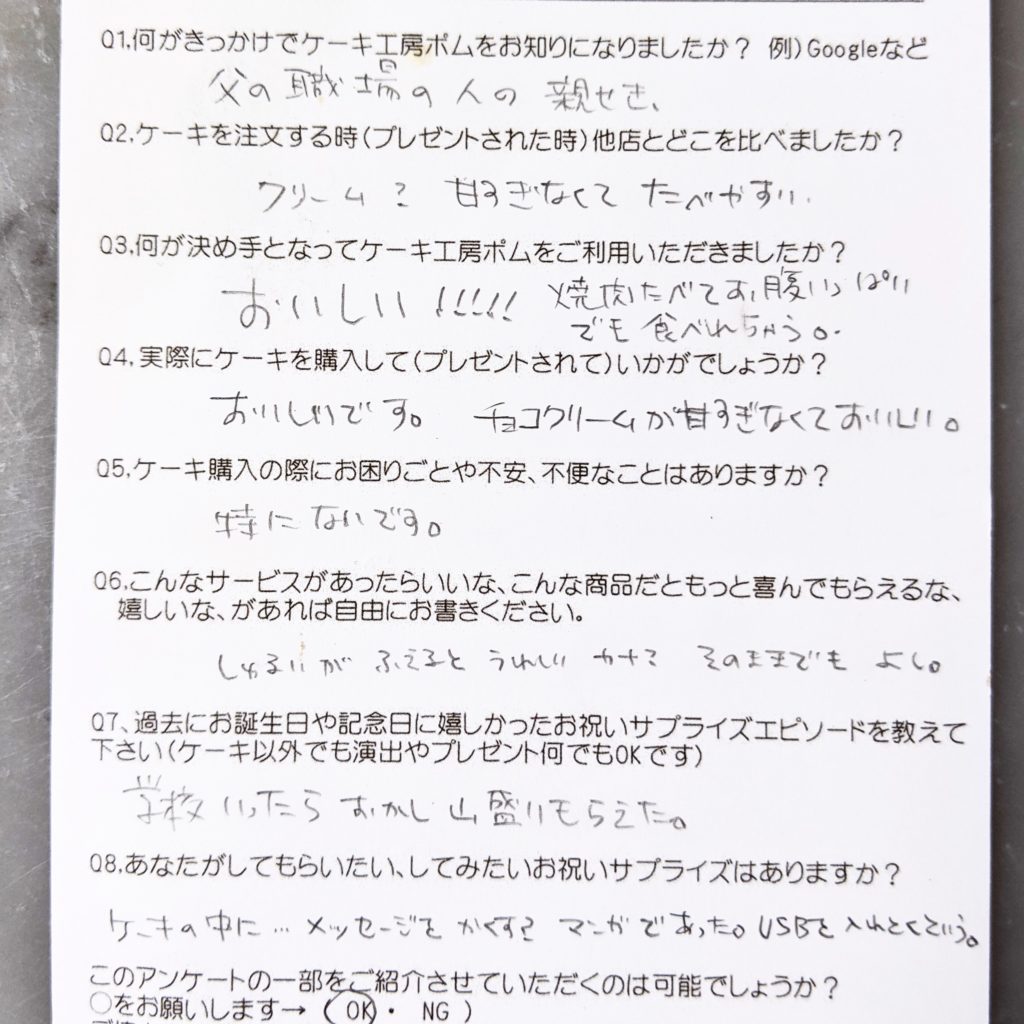 Q1.何がきっかけでケーキ工房ポムをお知りになりましたか？ 例)Googleなど
父の職場の人の親せき、
Q2.ケーキを注文する時(プレゼントされた時)他店とどこを比べましたか？
クリーム？ 甘すぎなくて たべやすい.
Q3.何が決め手となってケーキ工房ポムをご利用いただきましたか？
おいしい!!!!! 焼肉たべてお腹いっぱい
でも食べれちゃう。
Q4.実際にケーキを購入して(プレゼントされて)いかがでしょうか？
おいしいです。 チョコクリームが甘すぎなくておいしい。
Q5.ケーキ購入の際にお困りごとや不安、不便なことはありますか？
特にないです。
Q6.こんなサービスがあったらいいな、こんな商品だともっと喜んでもらえるな、
嬉しいな、があれば自由にお書きください。
しゅるいが ふえると うれしい カナ？ そのままでも よし。
Q7、過去にお誕生日や記念日に嬉しかったお祝いサプライズエピソードを教えて
下さい(ケーキ以外でも演出やプレゼント何でもOKです)
学校いったら おかし山盛りもらえた。
Q8.あなたがしてもらいたい、してみたいお祝いサプライズはありますか？
ケーキの中に… メッセージを かくす？ マンガであった。USBを入れとくという。
このアンケートの一部をご紹介させていただくのは可能でしょうか？
○をお願いします→ ( OK ・ NG )